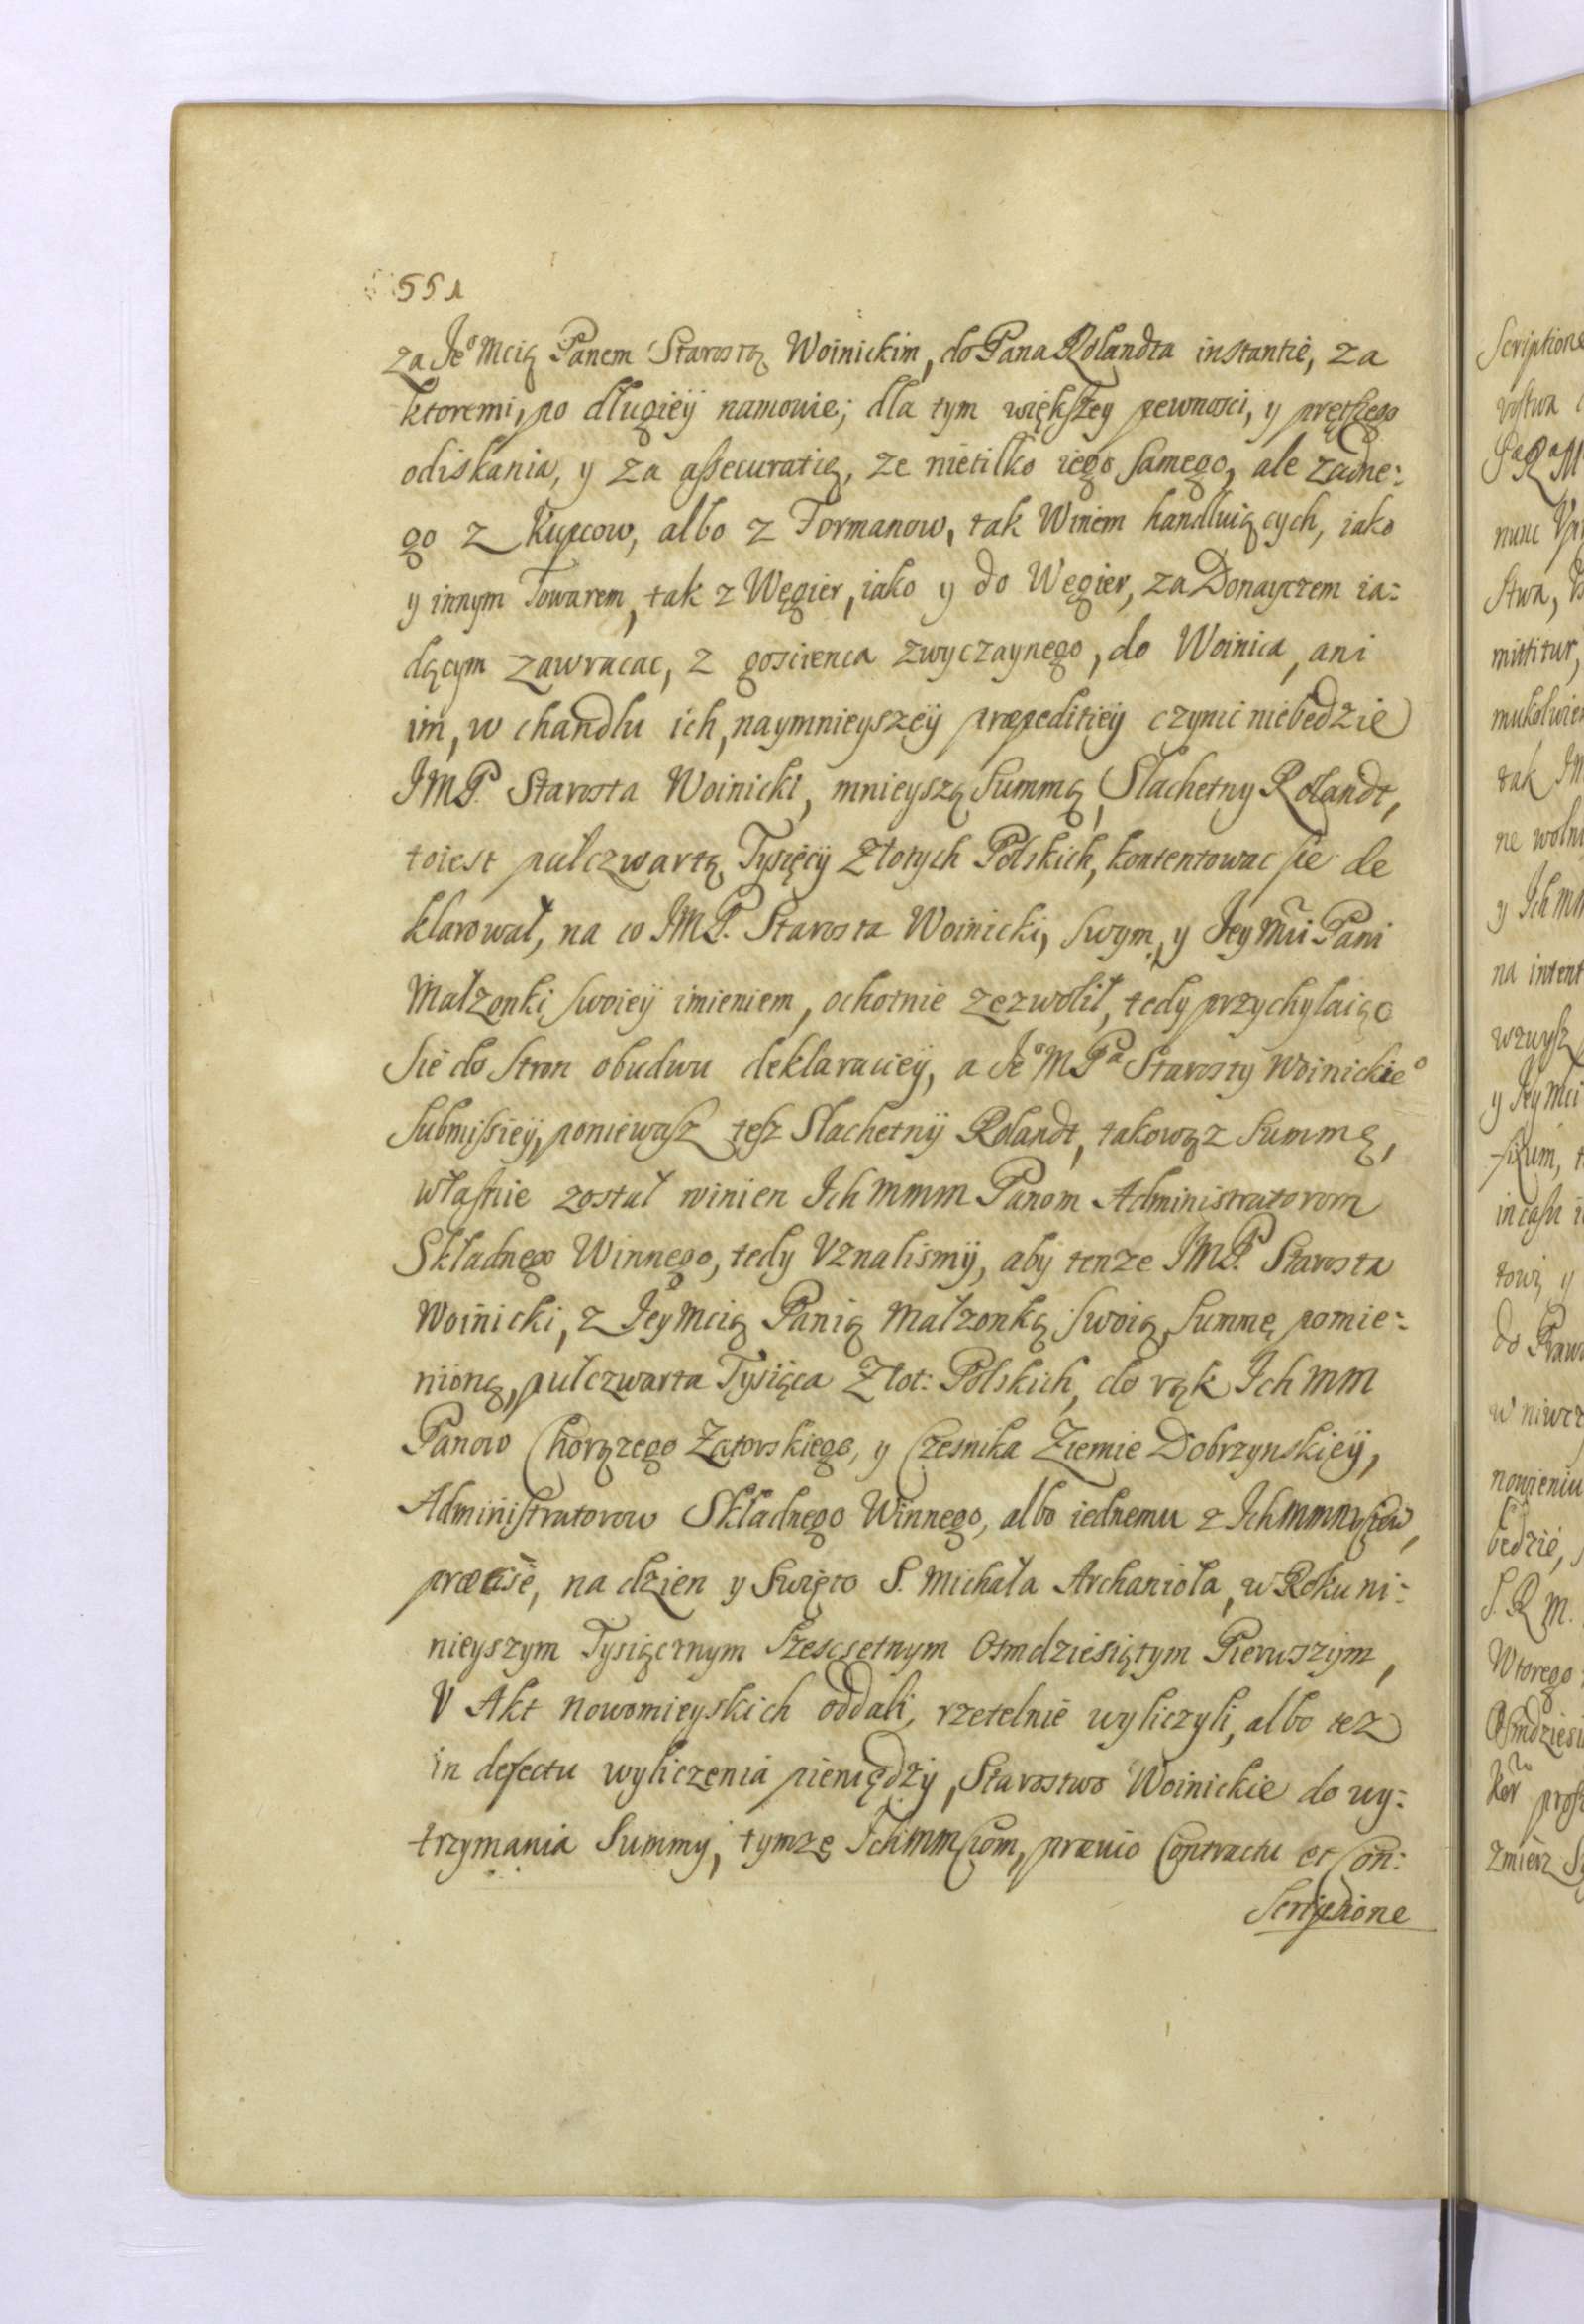 551
za Jeº Mcią Panem Starostą Woinickim, do Pana Rolandta instantie, za
ktoremi, po długiey namowie; dla tym większey pewnosci, y prętkiego
odiskania, y za assecuratią, ze nietilko iego samego, ale zadne:
go z Kupcow, albo z Formanow, tak Winem handluiących, iako
y innym Towarem, tak z Węgier, iako y do Węgier, za Donayczem ia:
dącym zawracac, z goscienca zwyczaynego, do Woinica, ani
im, w chandlu ich, naymnieyszey præpeditiey czynic niebędzie
JMP. Starosta Woinicki, mnieyszą Summą, Slachetny Rolandt,
toiest pułczwartą Tysięcy Złotych Polskich, kontentowac sie de
klarował, na co JMP. Starosta Woinicki, swym, y Jey Mci Pani
Małzonki swoiey imieniem, ochotnie zezwolił, tedy przychylaiąc
sie do stron obudwu deklaraciey, a Jeº M Pª Starosty Woinickieº
submissiey, poniewasz tesz Slachetny Rolandt, takowąz Summę,
własnie został winien Ich mmm Panom Administratorom
Składnego Winnego, tedy Vznalismy, aby tenze JMP. Starosta
Woinicki, z Jey Mcią Panią Małzonką swoią, Summę pomie:
nioną, pułczwarta Tysiąca Złot: Polskich, do rąk Ich mm
Panow Chorązego Zatorskiego, y Czesnika Ziemie Dobrzynskiey,
Administratorow Składnego Winnego, albo iednemu z Ich
præcise, na dzien y Swięto S. Michała Archanioła, w Roku ni:
nieyszym Tysiącznym Szescsetnym Osmdziesiątym Pierwszym,
V Akt Nowomieyskich oddali, rzetelnie wyliczyli, albo tez
in defectu wyliczenia pieniędzy, Starostwo Woinickie do wy:
trzymania Summy, tymze Ichmmciom, prævio Contractu et Con:
scriptione
Scriptione